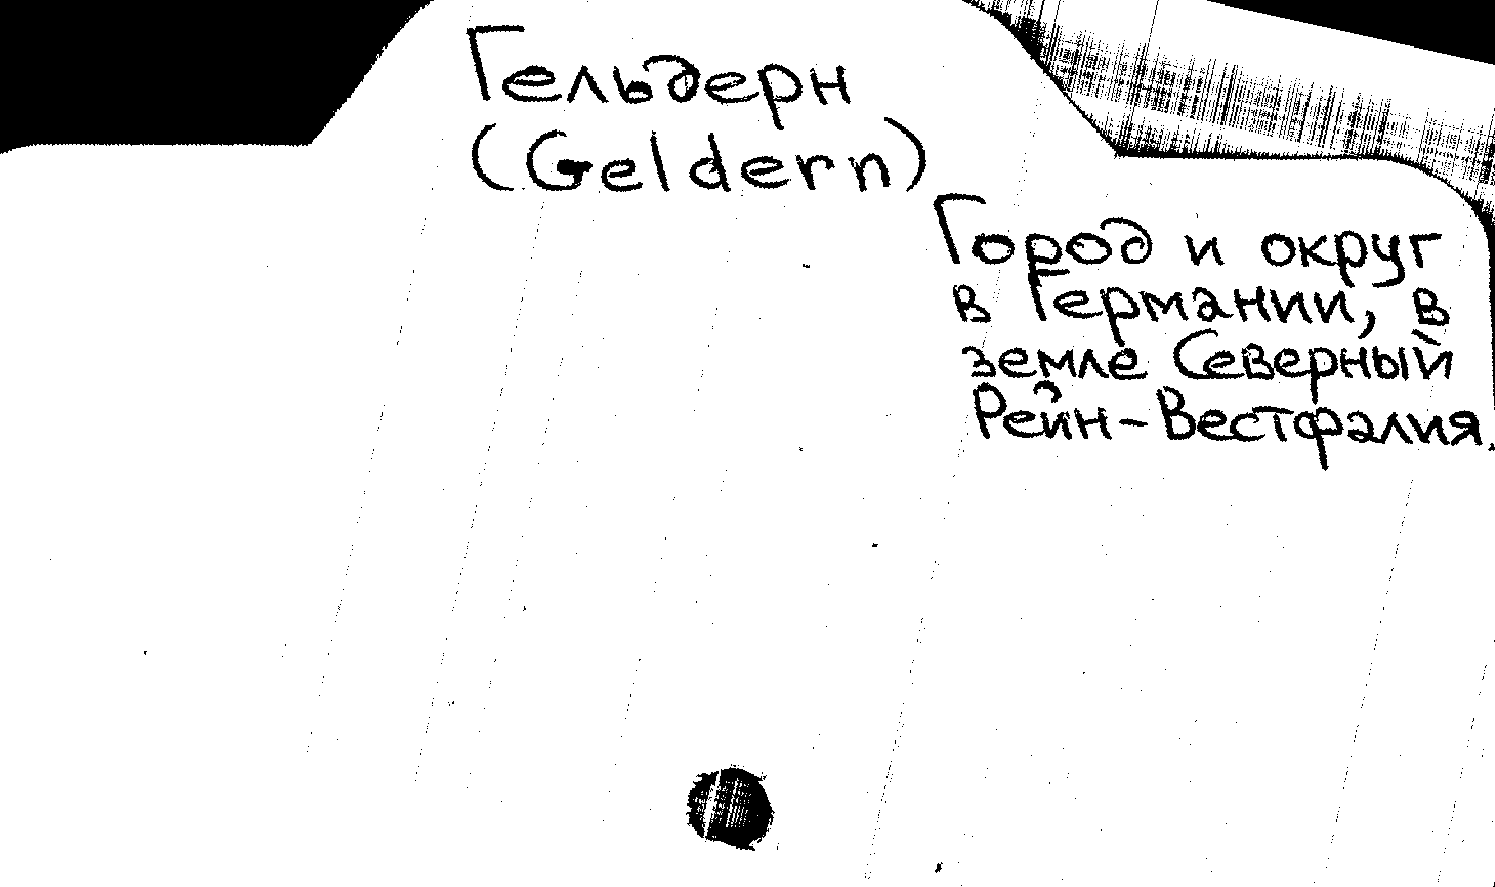 Гельдерн
(Geldern)
Город и округ
в Германии, в
земле Северный
Рейн-Вестфалия.